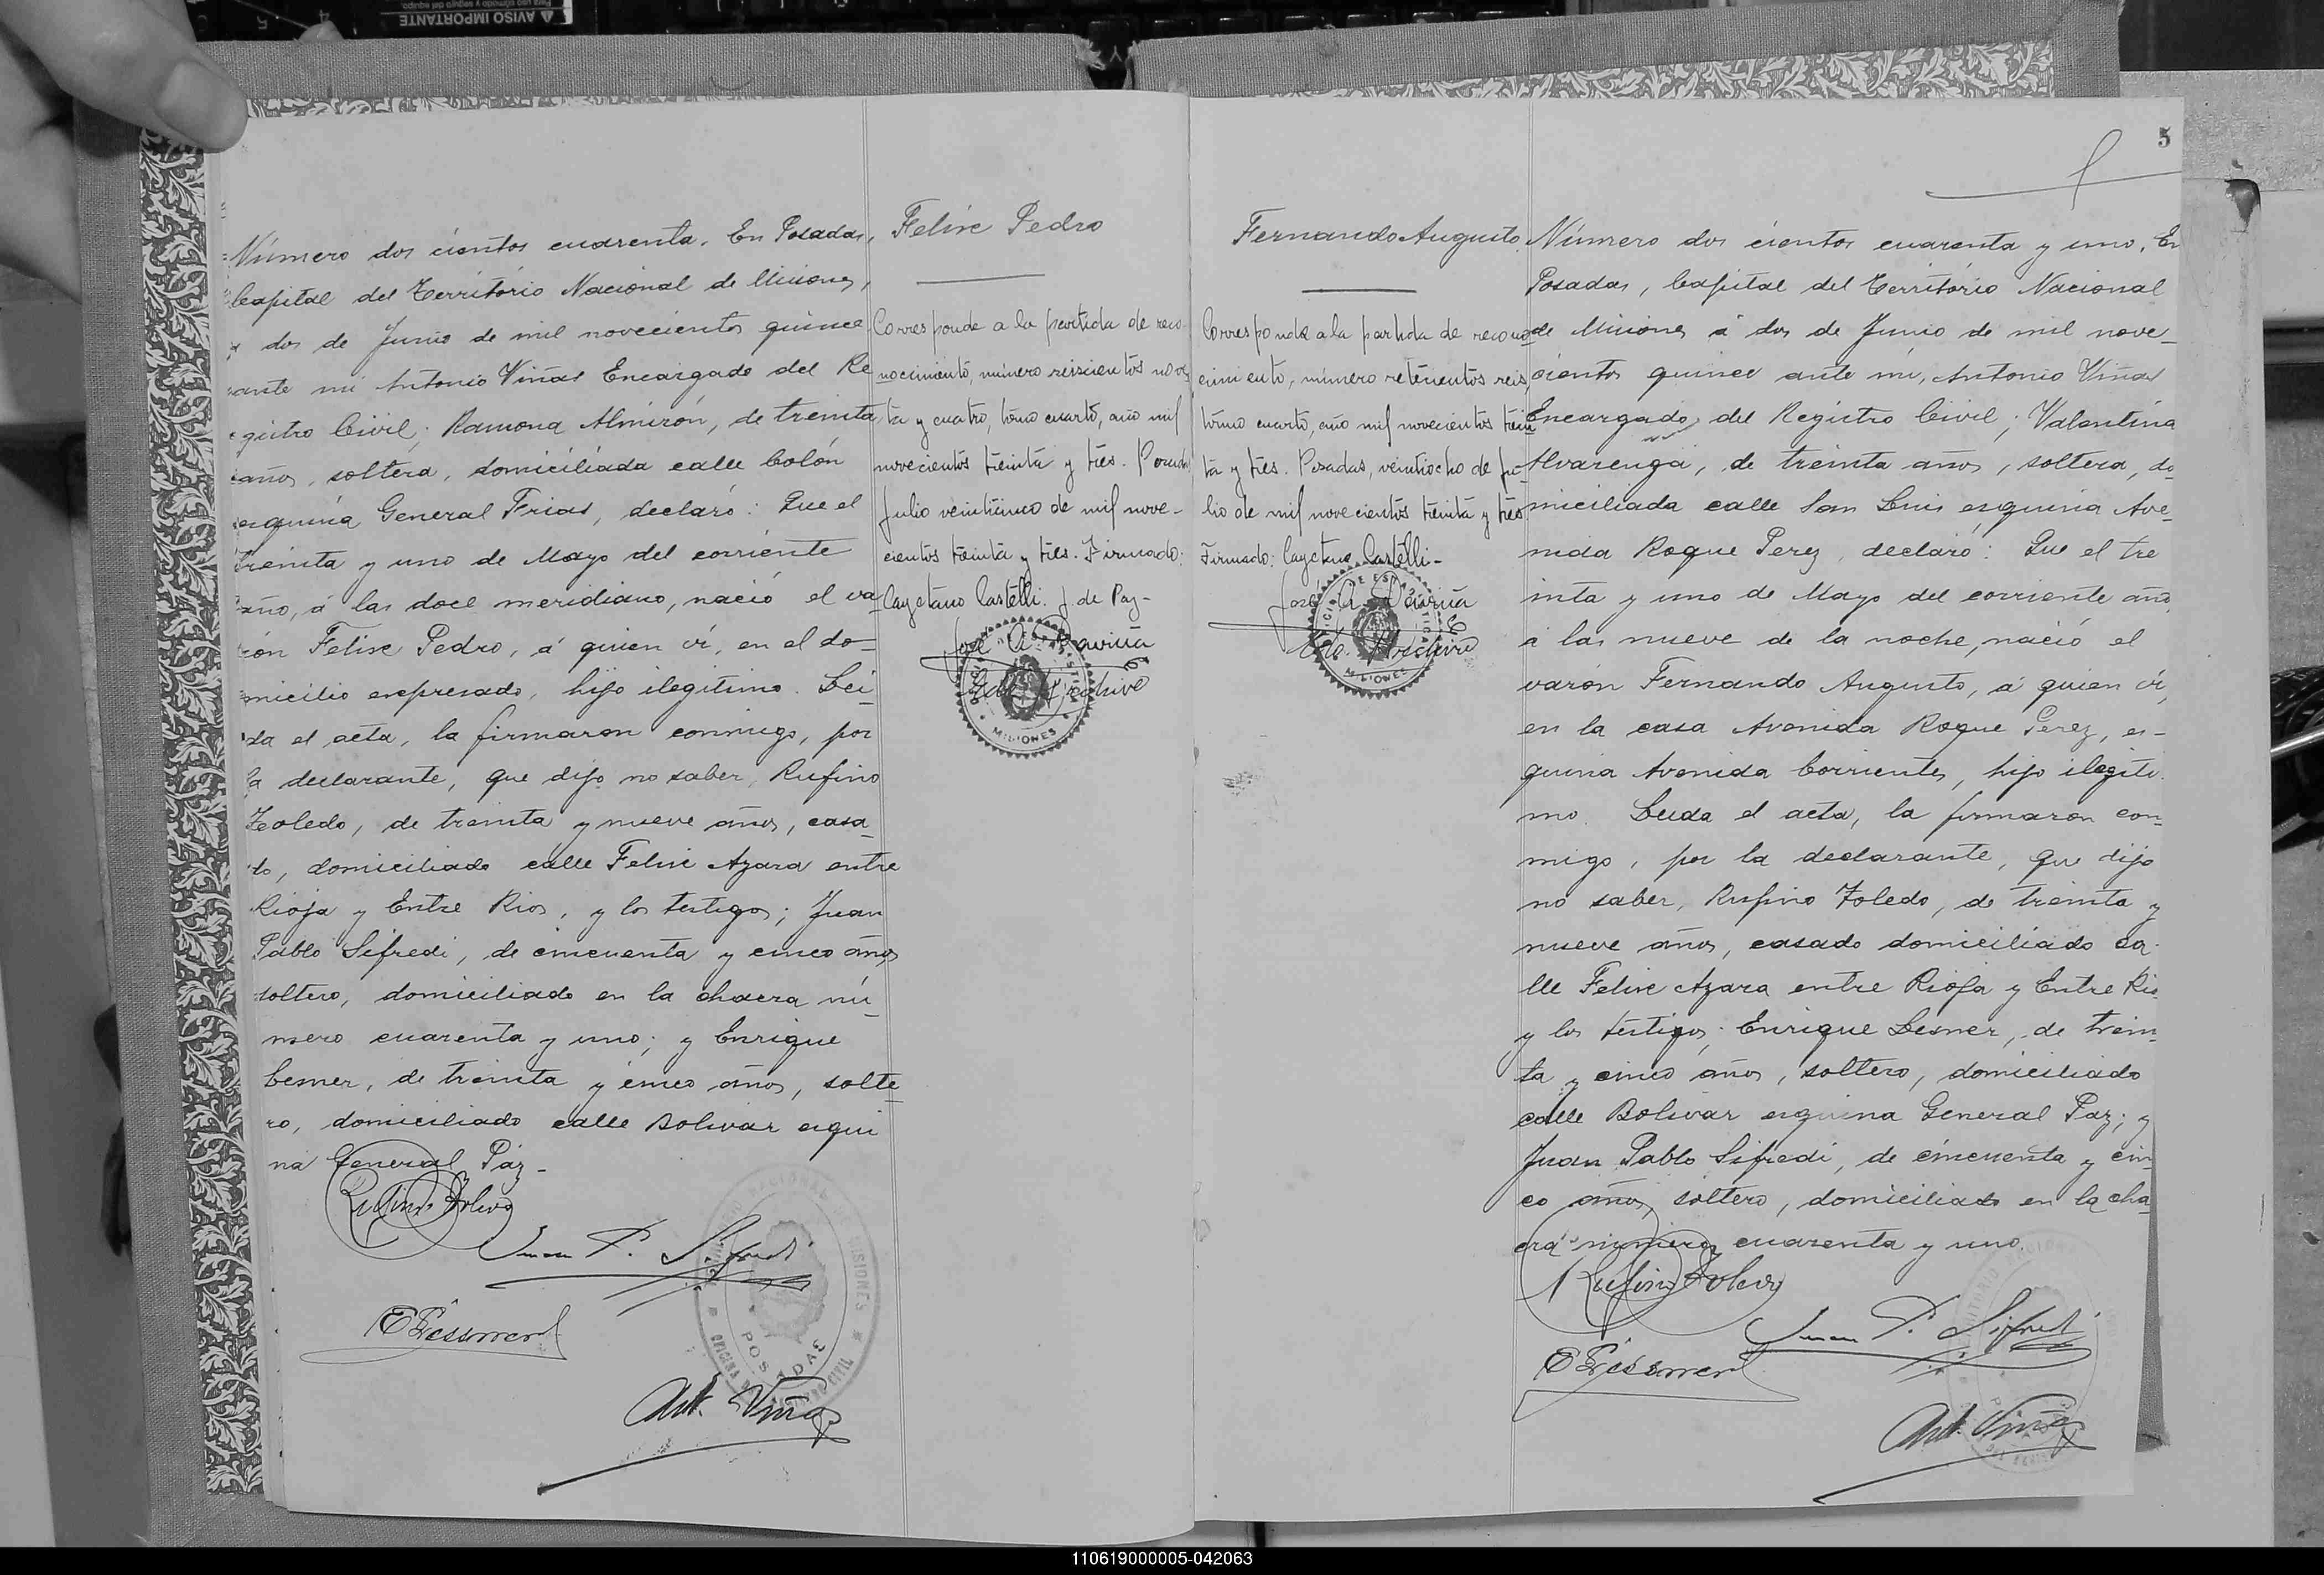 AVISO IMPORTANTE
5
Felix Pedro
Número dos cientos cuarenta. En Posadas,
Capital del Território Nacional de Misiones,
dos de Junio de mil novecientos quince
ante mi Antonio Viñas Encargado del Re
gistro Civil; Ramona Almirón, de treinta
años, soltera, domiciliada calle Colón
esquina General Frias, declaró: Que el
treinta y uno de Mayo del corriente
año, á las doce meridiano, nació el va
rón Felix Pedro, á quien ví, en el do-
micilio expresado, hijo ilegítimo. Lei-
da el acta, la firmaron conmigo, por
la declarante, que dijo no saber, Rufino
Toledo, de treinta y nueve años, casa-
do, domiciliado calle Felix Azara entre
Rioja y Entre Rios, y los testigos; Juan
Pablo Sifredi, de cincuenta y cinco años
soltero, domiciliado en la chacra nú-
mero cuarenta y uno; y Enrique
Lesmer, de treinta y cinco años, solte-
ro, domiciliado calle Bolivar esqui
na General Paz-
Rufino Toledo
Juan P. Sifredi
Ant. Viñas
Corresponde a la partida de reco-
nocimiento, número seiscientos noven
ta y cuatro, tomo cuarto, año mil
novecientos treinta y tres. Posadas
Julio veinticinco de mil nove-
cientos treinta y tres. Firmado:
Cayetano Castelli. J de Paz-
MISIONES
POSADAS
Fernando Augusto
Corresponde a la partida de recono-
cimiento, número setecientos seis,
tomo cuarto, año mil novecientos trein
ta y tres. Posadas, veintiocho de ju-
lio de mil novecientos treinta y tres
Firmado: Cayetano Castelli-
MISIONES
Número dos cientos cuarenta y uno. En
Posadas, Capital del Território Nacional
de Misiones á dos de Junio de mil nove-
cientos quince ante mi, Antonio Viñas
Encargado del Registro Civil; Valentina
Alvarenga, de treinta años, soltera, do
miciliada calle San Luis esquina Ave-
nida Roque Perez, declaró: Que el tre
inta y uno de Mayo del corriente año
á las nueve de la noche, nació el
varón Fernando Augusto, á quien ví,
en la casa Avenida Roque Perez, es-
quina Avenida Corrientes, hijo ilegíti-
mo. Leida el acta, la firmaron con-
migo, por la declarante, que dijo
no saber, Rufino Toledo, de treinta y
nueve años, casado domiciliado ca-
lle Felix Azara entre Rioja y Entre Rio
y los testigos; Enrique Lesmer, de trein
ta y cinco años, soltero, domiciliado
calle Bolivar esquina General Paz; y
Juan Pablo Sifredi, de cincuenta y cin-
co años, soltero, domiciliado en la cha-
cra número cuarenta y uno.
Rufino Toledo
Juan P. Sifredi
Ant. Viñas
110619000005-042063